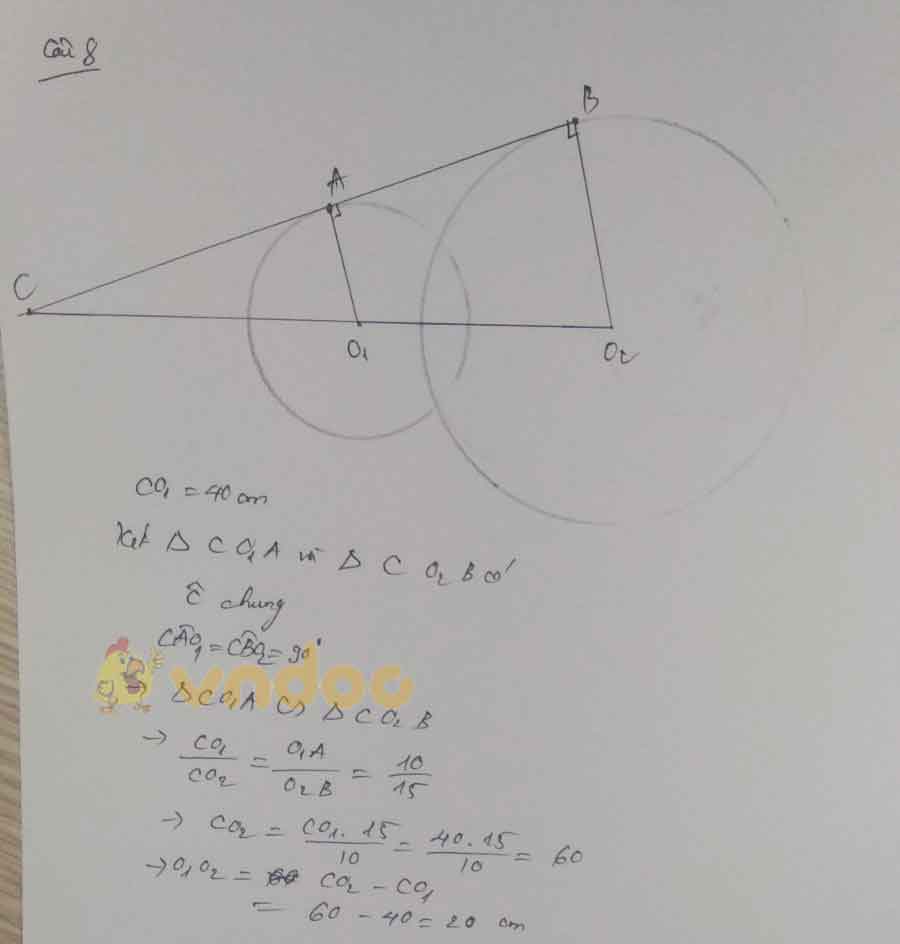 Câu 8
B
A
C
O₁
O₂
CO₁ = 40 cm
Xét Δ CO₁A và Δ C O₂ B có
Ĉ chung
CÂO₁ = CB̂O₂ = 90°
vndoc
→ Δ CO₁A ∽ Δ CO₂B
→ CO₁/CO₂ = O₁A/O₂B = 10/15
→ CO₂ = CO₁.15/10 = 40.15/10 = 60
→ O₁O₂ = CO₂ - CO₁
= 60 - 40 = 20 cm